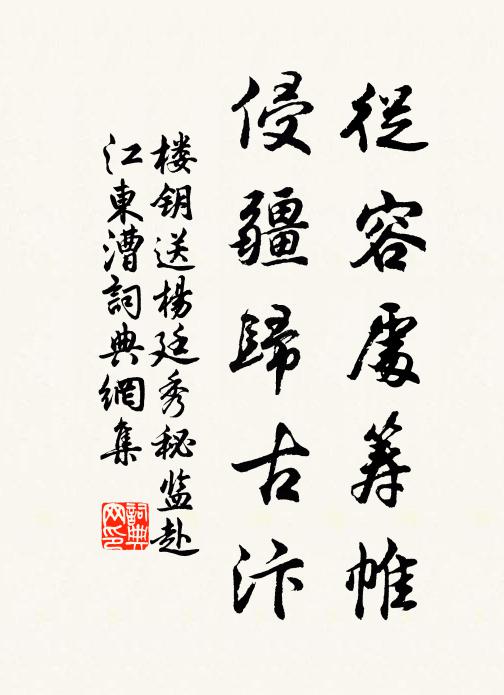 從容處筹帷
侵疆歸古汴
楼钥送楊廷秀秘监赴
江東漕詞典網集
詞典
网印